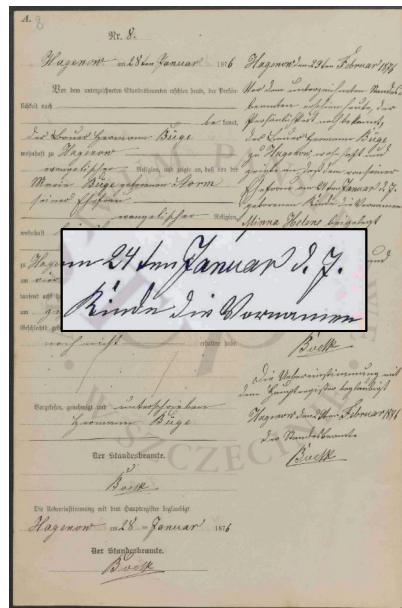 A. 8
Nr. 8.
Hagenow am 28ten Januar 1876
Vor dem unterzeichneten Standesbeamten erschien heute, der Persön-
lichkeit nach
be kannt,
der Bauer Hermann Büge
wohnhaft zu Hagenow
evangelischer Religion, und zeigte an, daß von der
Marie Büge geborenen Storm
seiner Ehefrau
evangelischer Religion
wohnhaft
zu Hagenow
tausend acht
Geschlechts
noch nicht erhalten habe
Vorgelesen, genehmigt und unterschrieben
Hermann Büge
Der Standesbeamte.
Böck
Die Uebereinstimmung mit dem Hauptregister beglaubigt
Hagenow am 28 ten Januar 1876
Der Standesbeamte.
Böck
Hagenow den 29ten Februar 1876
Vor dem unterzeichneten Standes-
beamten erschien heute, der
Persönlichkeit nach bekannt,
der Bauer Hermann Büge
zu Hagenow wohnhaft und
zeigte an, daß dem von seiner
Ehefrau am 24ten Januar d. J.
geborenen Kinde die Vornamen
Minna Helene beigelegt
am 24ten Januar d. J.
Kinde die Vornamen
Böck
Die Uebereinstimmung mit
dem Hauptregister beglaubigt
Hagenow den Februar 1876
Der Standesbeamte
Böck
W SZCZECINIE